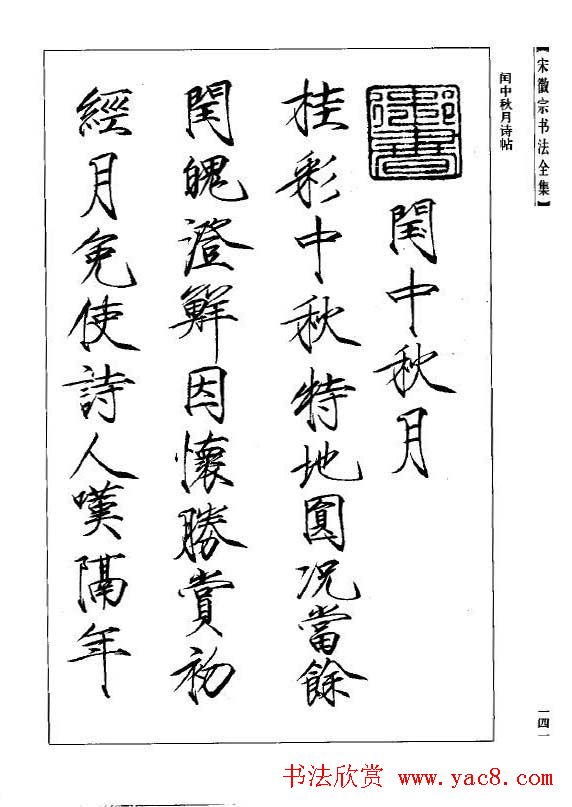 【宋徽宗书法全集】
闰中秋月诗帖
御書
閏中秋月
桂彩中秋特地圓况當餘
閏魄澄鮮因懷勝賞初
經月免使詩人嘆隔年
一四一
书法欣赏 www.yac8.com